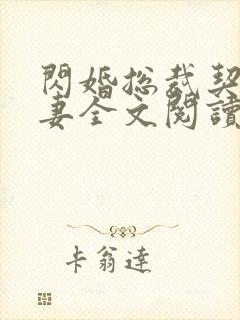 閃婚總裁契
妻全文閱讀
卡翁達